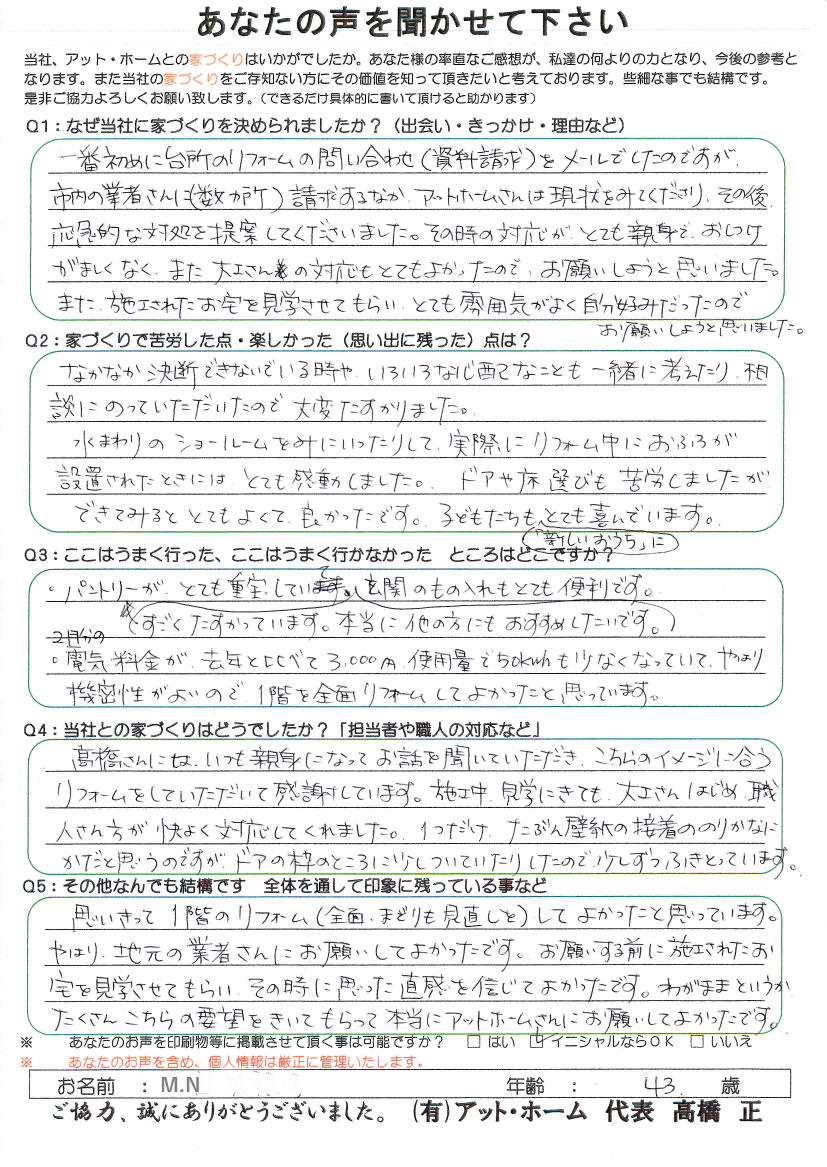 あなたの声を聞かせて下さい
当社、アット・ホームとの家づくりはいかがでしたか。あなた様の率直なご感想が、私達の何よりの力となり、今後の参考と
なります。また当社の家づくりをご存知ない方にその価値を知って頂きたいと考えております。些細な事でも結構です。
是非ご協力よろしくお願い致します。（できるだけ具体的に書いて頂けると助かります）
Q1：なぜ当社に家づくりを決められましたか？（出会い・きっかけ・理由など）
一番初めに台所のリフォームの問い合わせ（資料請求）をメールでしたのですが、
市内の業者さんに（数か所）請求するなか、アットホームさんは現状をみてくださり、その後、
応急的な対処を提案してくださいました。その時の対応が、とても親身で、おしつけ
がましくなく、また大工さんの対応もとてもよかったので、お願いしようと思いました。
また、施工されたお宅を見学させてもらい、とても雰囲気がよく自分好みだったので
お願いしようと思いました。
Q2：家づくりで苦労した点・楽しかった（思い出に残った）点は？
なかなか決断できないでいる時や、いろいろな心配なことも一緒に考えたり、相
談にのっていただいたので大変たすかりました。
水まわりのショールームをみにいったりして、実際にリフォーム中におふろが
設置されたときには、とても感動しました。ドアや床選びも苦労しましたが
できてみるととてもよくて、良かったです。子どもたちも、とても喜んでいます。
「新しいおうち」に
Q3：ここはうまく行った、ここはうまく行かなかった　ところはどこですか？
。パントリーが、とても重宝していて、玄関のもの入れもとても便利です。
（すごくたすかっています。本当に他の方にもおすすめしたいです。）
2月分の
。電気料金が、去年とくらべて3,000円、使用量で50kwhも少なくなっていて、やはり
機密性がよいので、1階を全面リフォームしてよかったと思っています。
Q4：当社との家づくりはどうでしたか？「担当者や職人の対応など」
高橋さんには、いつも親身になってお話を聞いていただき、こちらのイメージに合う
リフォームをしていただいて感謝しています。施工中、見学にきても、大工さんはじめ、職
人さん方が快よく対応してくれました。1つだけ、たぶん壁紙の接着ののりかなに
かだと思うのですが、ドアの枠のところに少しついていたりしたので、少しずつふきとっています。
Q5：その他なんでも結構です　全体を通して印象に残っている事など
思いきって1階のリフォーム（全面、まどりも見直しを）してよかったと思っています。
やはり、地元の業者さんにお願いしてよかったです。お願いする前に施工されたお
宅を見学させてもらい、その時に思った直感を信じてよかったです。わがままというか
たくさんこちらの要望をきいてもらって本当にアットホームさんにお願いしてよかったです。
※　あなたのお声を印刷物等に掲載させて頂く事は可能ですか？　□ はい　☑ イニシャルならOK　□ いいえ
※　あなたのお声を含め、個人情報は厳正に管理いたします。
お名前　：　M.N　年齢　：　43　歳
ご協力、誠にありがとうございました。　（有）アット・ホーム　代表　高橋　正